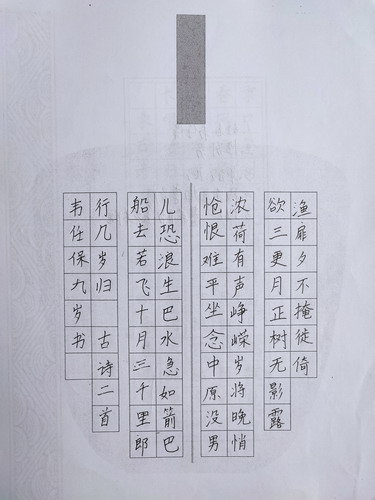 渔扉夕不掩徒倚
欲三更月正树无影露
浓荷有声峥嵘岁将晚悄
怆恨难平坐念中原没男
儿恐浪生巴水急如箭巴
船去若飞十月三千里郎
行几岁归 古诗二首
韦任保九岁书